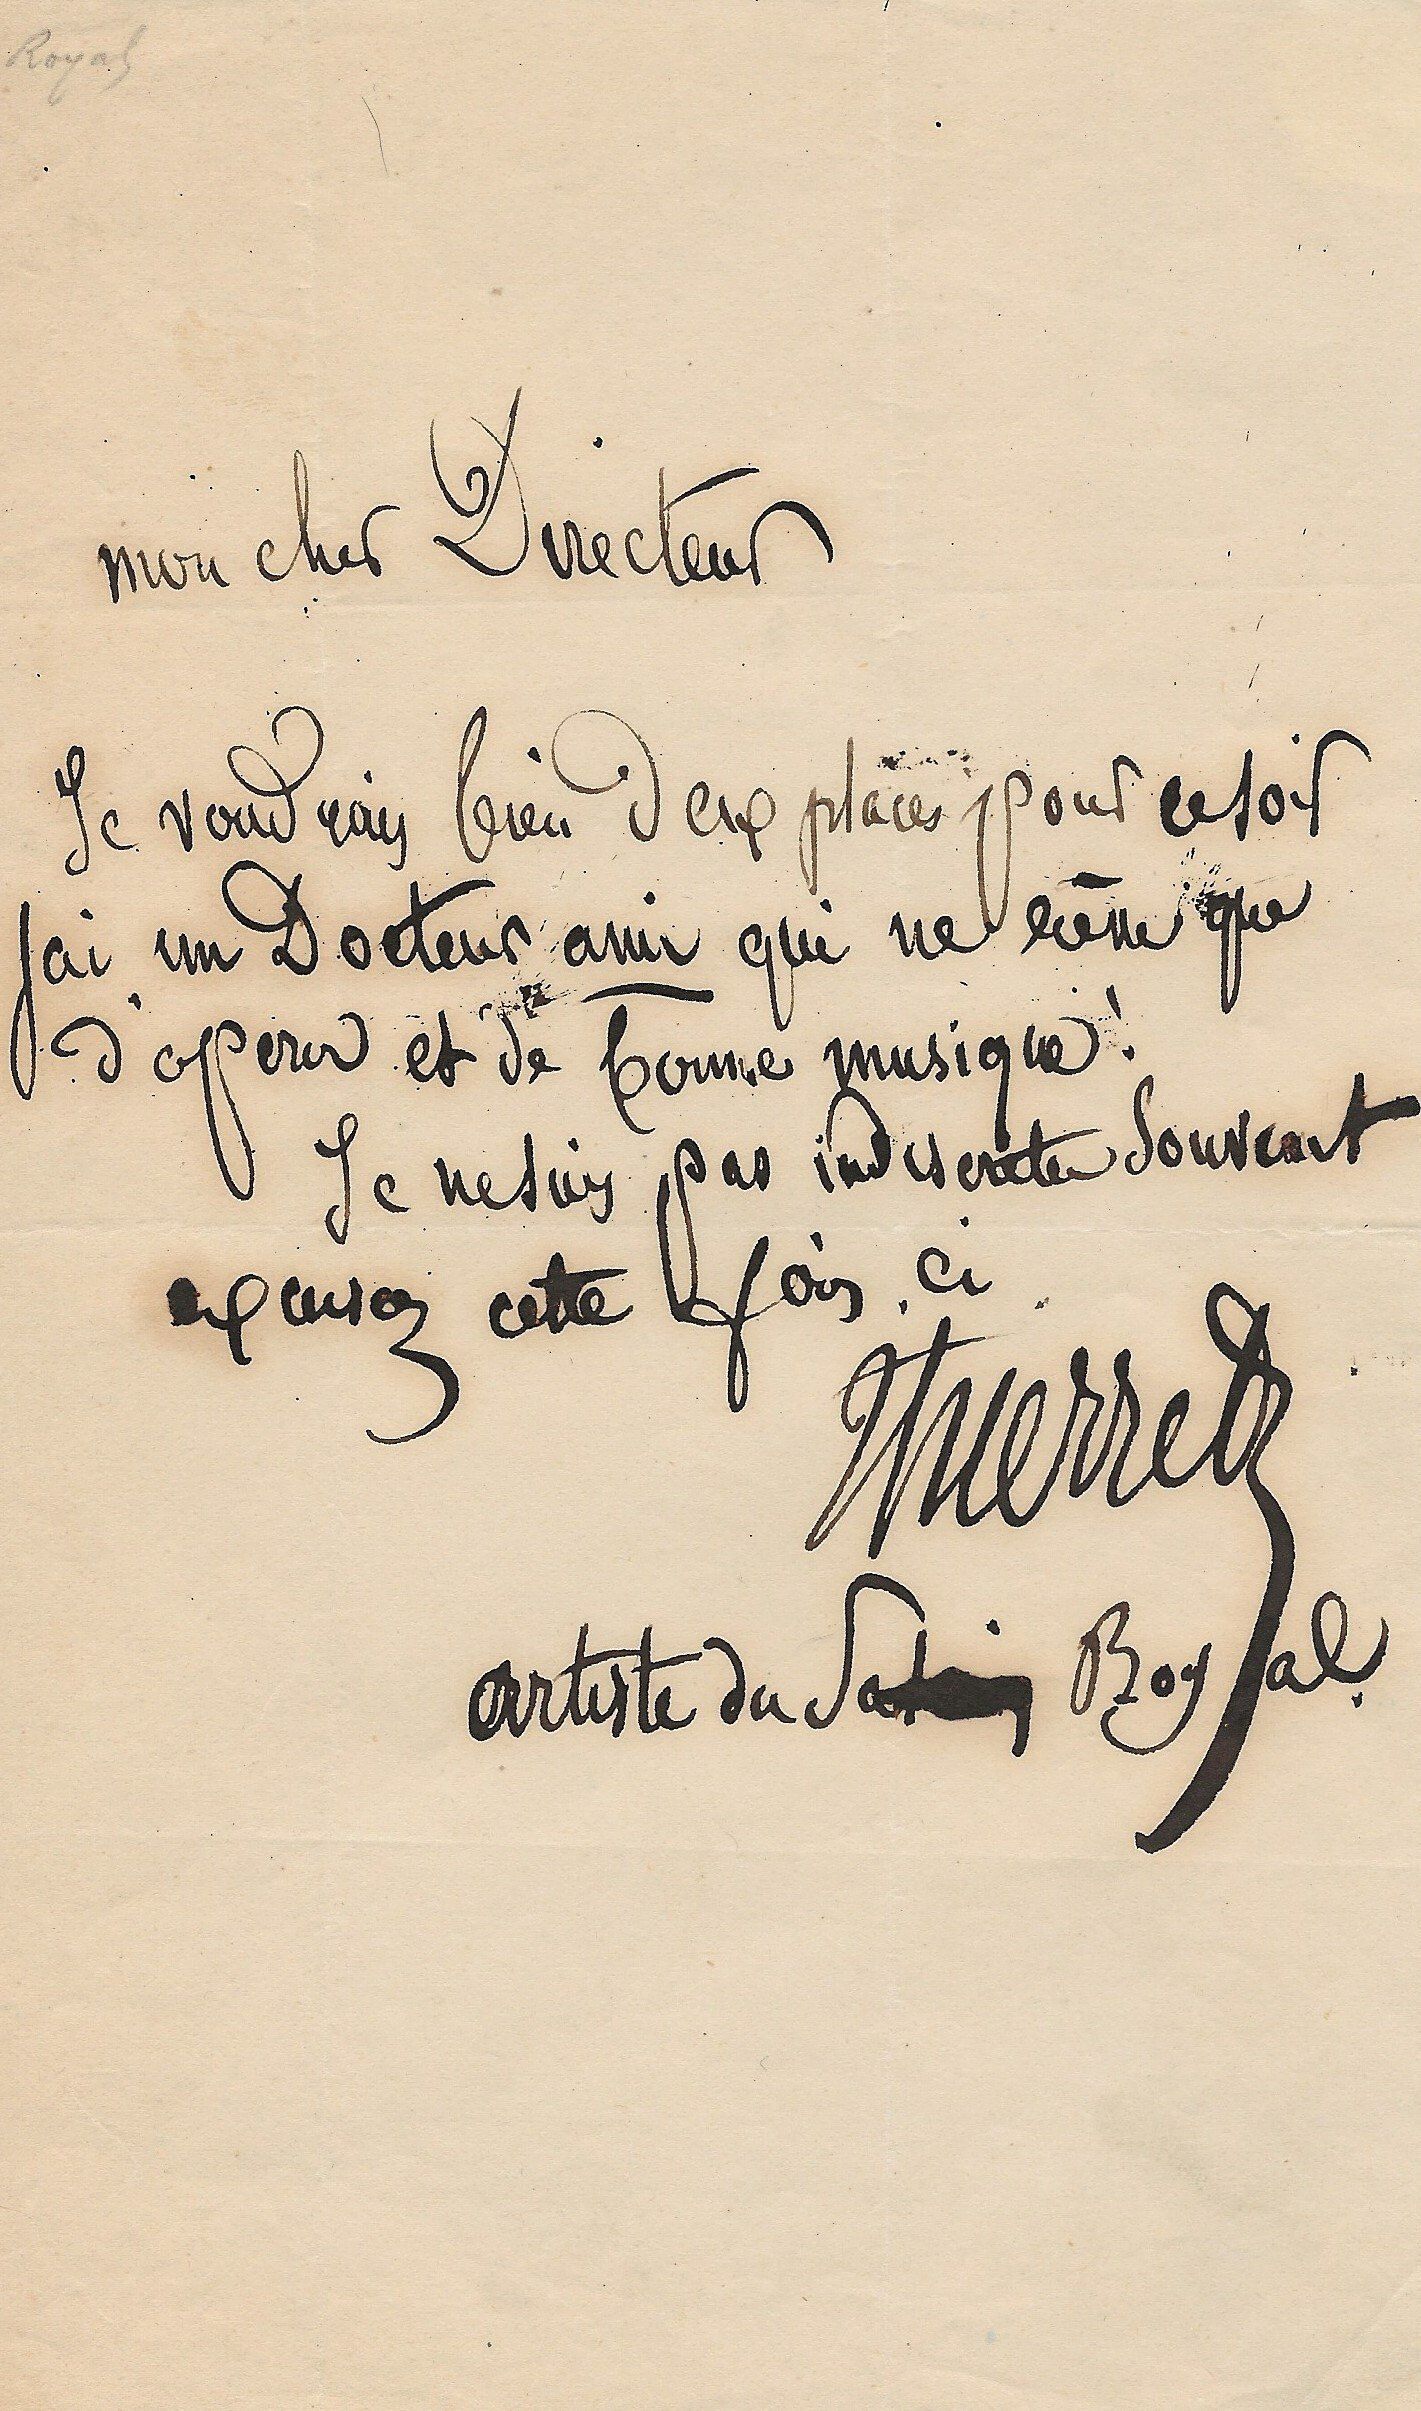 Royal
mon cher Directeur
Je voudrais bien deux places pour ce soir
J'ai un Docteur ami qui ne rêve que
d'opera et de bonne musique!
Je ne suis pas indiscrete souvent
excusez cette fois ci
Thierret
artiste du Royal